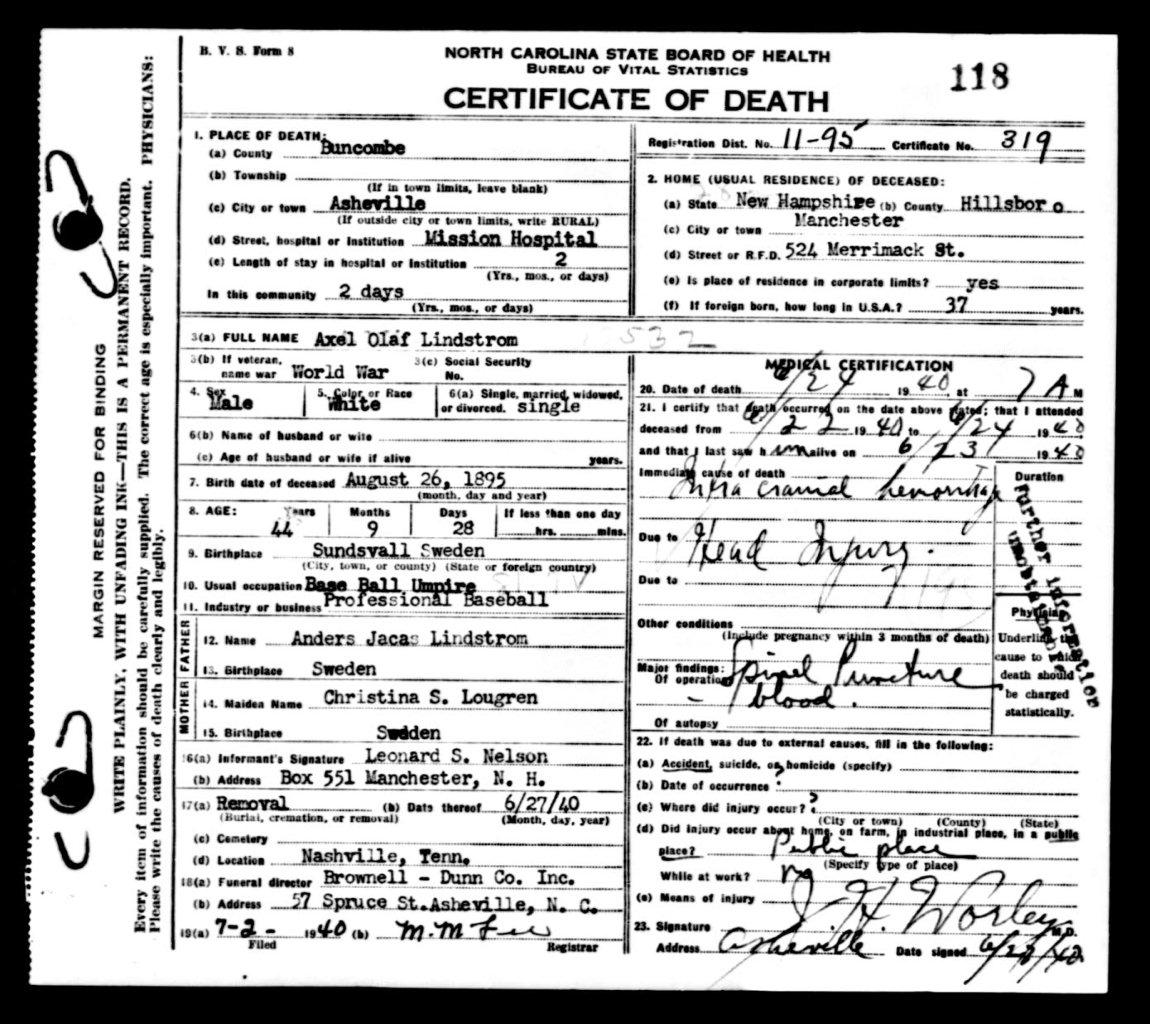 B. V. S. Form 8
NORTH CAROLINA STATE BOARD OF HEALTH
BUREAU OF VITAL STATISTICS
CERTIFICATE OF DEATH
118
MARGIN RESERVED FOR BINDING
WRITE PLAINLY, WITH UNFADING INK—THIS IS A PERMANENT RECORD.
Every item of information should be carefully supplied. The correct age is especially important. PHYSICIANS:
Please write the causes of death clearly and legibly.
1. PLACE OF DEATH:
(a) County Buncombe
(b) Township
(If in town limits, leave blank)
(c) City or town Asheville
(If outside city or town limits, write RURAL)
(d) Street, hospital or institution Mission Hospital
(e) Length of stay in hospital or institution 2
(Yrs., mos., or days)
In this community 2 days
(Yrs., mos., or days)
Registration Dist. No. 11-95 Certificate No. 319
2. HOME (USUAL RESIDENCE) OF DECEASED:
(a) State New Hampshire (b) County Hillsbor o
(c) City or town Manchester
(d) Street or R.F.D. 524 Merrimack St.
(e) Is place of residence in corporate limits? yes
(f) If foreign born, how long in U.S.A.? 37 years.
3(a) FULL NAME Axel Olaf Lindstrom
532
3(b) If veteran, name war World War
3(c) Social Security No.
4. Sex Male
5. Color or Race White
6(a) Single, married, widowed, or divorced. single
6(b) Name of husband or wife
(c) Age of husband or wife if alive years.
7. Birth date of deceased August 26, 1895
(month, day and year)
8. AGE: Years 44 Months 9 Days 28 If less than one day hrs. mins.
9. Birthplace Sundsvall Sweden
(City, town, or county) (State or foreign country)
10. Usual occupation Base Ball Umpire
11. Industry or business Professional Baseball
FATHER
12. Name Anders Jacas Lindstrom
13. Birthplace Sweden
MOTHER
14. Maiden Name Christina S. Lougren
15. Birthplace Sweden
16(a) Informant's Signature Leonard S. Nelson
(b) Address Box 551 Manchester, N. H.
17(a) Removal (b) Date thereof 6/27/40
(Burial, cremation, or removal) (Month, day, year)
(c) Cemetery
(d) Location Nashville, Tenn.
18(a) Funeral director Brownell - Dunn Co. Inc.
(b) Address 57 Spruce St. Asheville, N. C.
19(a) 7-2- 1940 (b) M. M.
Filed Registrar
MEDICAL CERTIFICATION
20. Date of death 6/24 1940 at 7 A M
21. I certify that death occurred on the date above stated; that I attended
deceased from 6/22 1940 to 6/24 1940
and that I last saw him alive on 6/23 1940
Immediate cause of death
Duration
Intra cranial hemorrhage
Due to Head Injury.
Due to
Further information unobtainable
Other conditions
(Include pregnancy within 3 months of death)
Physician
Underline the cause to which death should be charged statistically.
Major findings:
Of operation Spinal Puncture
- blood.
Of autopsy
22. If death was due to external causes, fill in the following:
(a) Accident, suicide, or homicide (specify)
(b) Date of occurrence ?
(c) Where did injury occur? ?
(City or town) (County) (State)
(d) Did injury occur about home, on farm, in industrial place, in a public
place? Public place
(Specify type of place)
While at work? no
(e) Means of injury
23. Signature J. H. Worley M.D.
Address Asheville Date signed 6/28/40